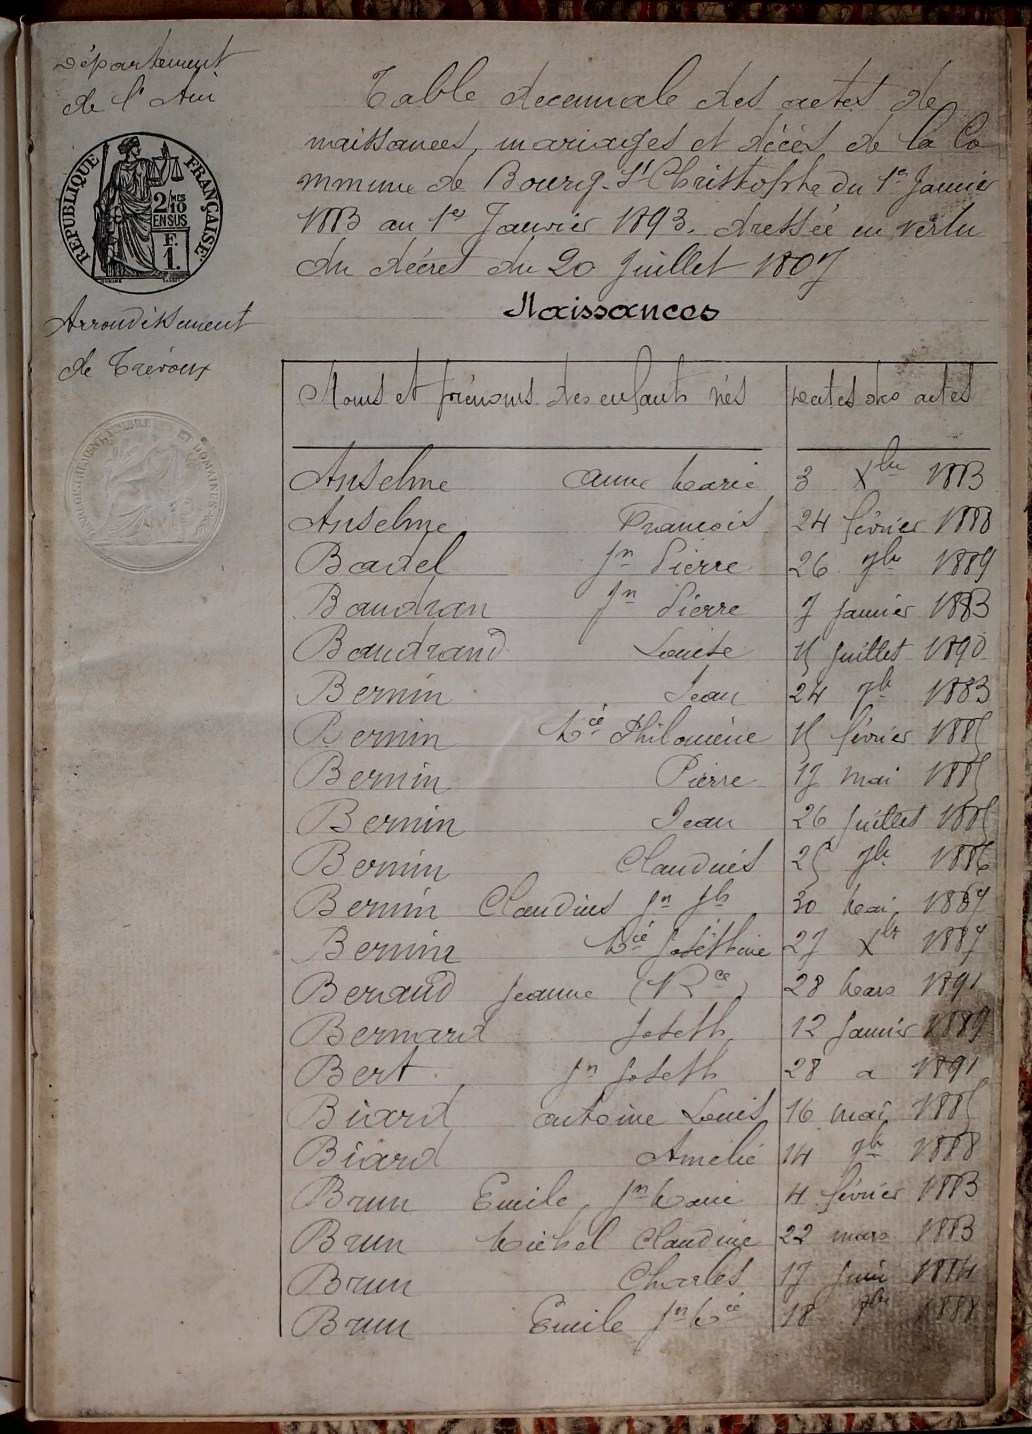 Département
de l'Ain
RÉPUBLIQUE FRANÇAISE
2/10 EN SUS
F.
1.
Arrondissement
de Trévoux
Table décennale des actes de
naissances, mariages et décès de la Co
mmune de Bourg-St Christophe du 1er Janvier
1883 au 1er Janvier 1893. dressée en vertu
du décret du 20 Juillet 1807
Naissances
Noms et prénoms des enfants nés Dates des actes
Anselme Anne Marie 3 Xbre 1883
Anselme François 24 février 1888
Badel Jn Pierre 26 1889
Baudran Jn Pierre 7 Janvier 1883
Baudrand Louise 15 Juillet 1890
Bernin Jean 24 1883
Bernin Mie Philomène 15 février 1885
Bernin Pierre 17 mai 1885
Bernin Jean 26 Juillet 1885
Bernin Claudius 25 1886
Bernin Claudius Jn Jh 30 Mai 1887
Bernin Mie Joséphine 27 Xbr 1887
Beraud Jeanne 28 Mars 1891
Bernard Joseph 12 Janvier 1889
Bert Jn Joseph 28 a 1891
Biard Antoine Louis 16 mai 1885
Biard Amélie 14 1888
Brun Emile Jn Marie 4 février 1883
Brun Michel Claudine 22 mars 1883
Brun Charles 17 Juin 1884
Brun Emile Jn Mie 18 1888